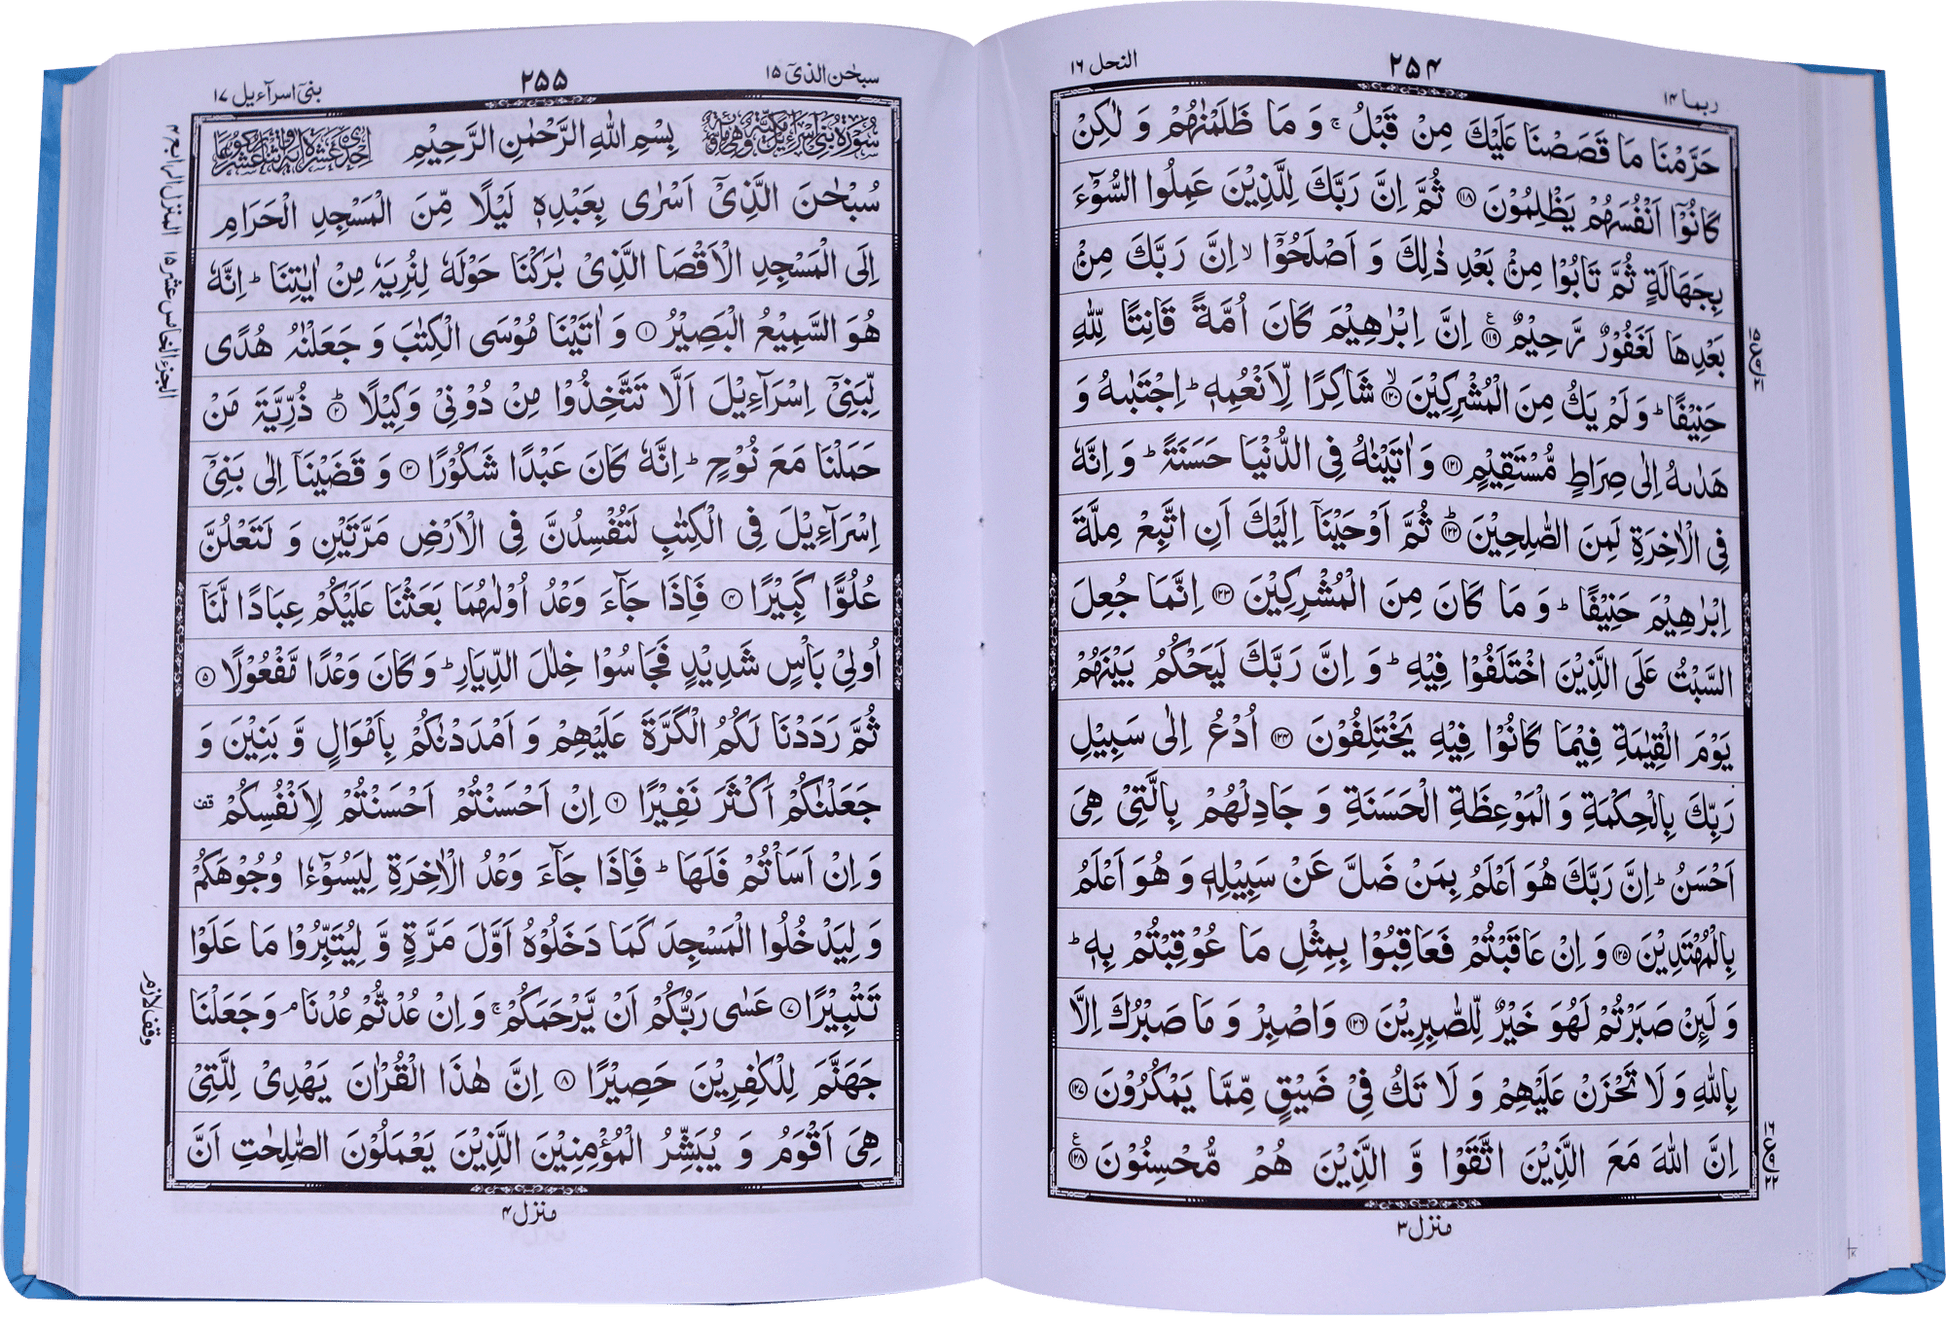 ربما ۱۴
۲۵۴
النحل ۱۶
حَرَّمْنَا مَا قَصَصْنَا عَلَيْكَ مِنْ قَبْلُ ۚ وَ مَا ظَلَمْنٰهُمْ وَ لٰكِنْ
كَانُوْۤا اَنْفُسَهُمْ يَظْلِمُوْنَ ﴿۱۱۸﴾ ثُمَّ اِنَّ رَبَّكَ لِلَّذِيْنَ عَمِلُوا السُّوْٓءَ
بِجَهَالَةٍ ثُمَّ تَابُوْا مِنْۢ بَعْدِ ذٰلِكَ وَ اَصْلَحُوْۤا ۙ اِنَّ رَبَّكَ مِنْۢ
بَعْدِهَا لَغَفُوْرٌ رَّحِيْمٌ ﴿۱۱۹﴾ اِنَّ اِبْرٰهِيْمَ كَانَ اُمَّةً قَانِتًا لِّلّٰهِ
حَنِيْفًا ؕ وَ لَمْ يَكُ مِنَ الْمُشْرِكِيْنَ ﴿۱۲۰﴾ شَاكِرًا لِّاَنْعُمِهٖ ؕ اِجْتَبٰىهُ وَ
هَدٰىهُ اِلٰى صِرَاطٍ مُّسْتَقِيْمٍ ﴿۱۲۱﴾ وَ اٰتَيْنٰهُ فِى الدُّنْيَا حَسَنَةً ؕ وَ اِنَّهٗ
فِى الْاٰخِرَةِ لَمِنَ الصّٰلِحِيْنَ ﴿۱۲۲﴾ ثُمَّ اَوْحَيْنَاۤ اِلَيْكَ اَنِ اتَّبِعْ مِلَّةَ
اِبْرٰهِيْمَ حَنِيْفًا ؕ وَ مَا كَانَ مِنَ الْمُشْرِكِيْنَ ﴿۱۲۳﴾ اِنَّمَا جُعِلَ
السَّبْتُ عَلَى الَّذِيْنَ اخْتَلَفُوْا فِيْهِ ؕ وَ اِنَّ رَبَّكَ لَيَحْكُمُ بَيْنَهُمْ
يَوْمَ الْقِيٰمَةِ فِيْمَا كَانُوْا فِيْهِ يَخْتَلِفُوْنَ ﴿۱۲۴﴾ اُدْعُ اِلٰى سَبِيْلِ
رَبِّكَ بِالْحِكْمَةِ وَ الْمَوْعِظَةِ الْحَسَنَةِ وَ جَادِلْهُمْ بِالَّتِيْ هِيَ
اَحْسَنُ ؕ اِنَّ رَبَّكَ هُوَ اَعْلَمُ بِمَنْ ضَلَّ عَنْ سَبِيْلِهٖ وَ هُوَ اَعْلَمُ
بِالْمُهْتَدِيْنَ ﴿۱۲۵﴾ وَ اِنْ عَاقَبْتُمْ فَعَاقِبُوْا بِمِثْلِ مَا عُوْقِبْتُمْ بِهٖ ؕ
وَ لَئِنْ صَبَرْتُمْ لَهُوَ خَيْرٌ لِّلصّٰبِرِيْنَ ﴿۱۲۶﴾ وَاصْبِرْ وَ مَا صَبْرُكَ اِلَّا
بِاللّٰهِ وَ لَا تَحْزَنْ عَلَيْهِمْ وَ لَا تَكُ فِيْ ضَيْقٍ مِّمَّا يَمْكُرُوْنَ ﴿۱۲۷﴾
اِنَّ اللّٰهَ مَعَ الَّذِيْنَ اتَّقَوْا وَّ الَّذِيْنَ هُمْ مُّحْسِنُوْنَ ﴿۱۲۸﴾
منزل ۳
سبحٰن الذیٓ ۱۵
۲۵۵
بنیٓ اسرآءیل ۱۷
بِسْمِ اللّٰهِ الرَّحْمٰنِ الرَّحِيْمِ
سُبْحٰنَ الَّذِيْۤ اَسْرٰى بِعَبْدِهٖ لَيْلًا مِّنَ الْمَسْجِدِ الْحَرَامِ
اِلَى الْمَسْجِدِ الْاَقْصَا الَّذِيْ بٰرَكْنَا حَوْلَهٗ لِنُرِيَهٗ مِنْ اٰيٰتِنَا ؕ اِنَّهٗ
هُوَ السَّمِيْعُ الْبَصِيْرُ ﴿۱﴾ وَ اٰتَيْنَا مُوْسَى الْكِتٰبَ وَ جَعَلْنٰهُ هُدًى
لِّبَنِيْۤ اِسْرَآءِيْلَ اَلَّا تَتَّخِذُوْا مِنْ دُوْنِيْ وَكِيْلًا ﴿۲﴾ ذُرِّيَّةَ مَنْ
حَمَلْنَا مَعَ نُوْحٍ ؕ اِنَّهٗ كَانَ عَبْدًا شَكُوْرًا ﴿۳﴾ وَ قَضَيْنَاۤ اِلٰى بَنِيْۤ
اِسْرَآءِيْلَ فِى الْكِتٰبِ لَتُفْسِدُنَّ فِى الْاَرْضِ مَرَّتَيْنِ وَ لَتَعْلُنَّ
عُلُوًّا كَبِيْرًا ﴿۴﴾ فَاِذَا جَآءَ وَعْدُ اُوْلٰىهُمَا بَعَثْنَا عَلَيْكُمْ عِبَادًا لَّنَاۤ
اُولِيْ بَاْسٍ شَدِيْدٍ فَجَاسُوْا خِلٰلَ الدِّيَارِ ؕ وَ كَانَ وَعْدًا مَّفْعُوْلًا ﴿۵﴾
ثُمَّ رَدَدْنَا لَكُمُ الْكَرَّةَ عَلَيْهِمْ وَ اَمْدَدْنٰكُمْ بِاَمْوَالٍ وَّ بَنِيْنَ وَ
جَعَلْنٰكُمْ اَكْثَرَ نَفِيْرًا ﴿۶﴾ اِنْ اَحْسَنْتُمْ اَحْسَنْتُمْ لِاَنْفُسِكُمْ قف
وَ اِنْ اَسَاْتُمْ فَلَهَا ؕ فَاِذَا جَآءَ وَعْدُ الْاٰخِرَةِ لِيَسُوْٓءٗا وُجُوْهَكُمْ
وَ لِيَدْخُلُوا الْمَسْجِدَ كَمَا دَخَلُوْهُ اَوَّلَ مَرَّةٍ وَّ لِيُتَبِّرُوْا مَا عَلَوْا
تَتْبِيْرًا ﴿۷﴾ عَسٰى رَبُّكُمْ اَنْ يَّرْحَمَكُمْ ۚ وَ اِنْ عُدْتُّمْ عُدْنَا ۘ وَ جَعَلْنَا
جَهَنَّمَ لِلْكٰفِرِيْنَ حَصِيْرًا ﴿۸﴾ اِنَّ هٰذَا الْقُرْاٰنَ يَهْدِيْ لِلَّتِيْ
هِيَ اَقْوَمُ وَ يُبَشِّرُ الْمُؤْمِنِيْنَ الَّذِيْنَ يَعْمَلُوْنَ الصّٰلِحٰتِ اَنَّ
وقف لازم
منزل ۴